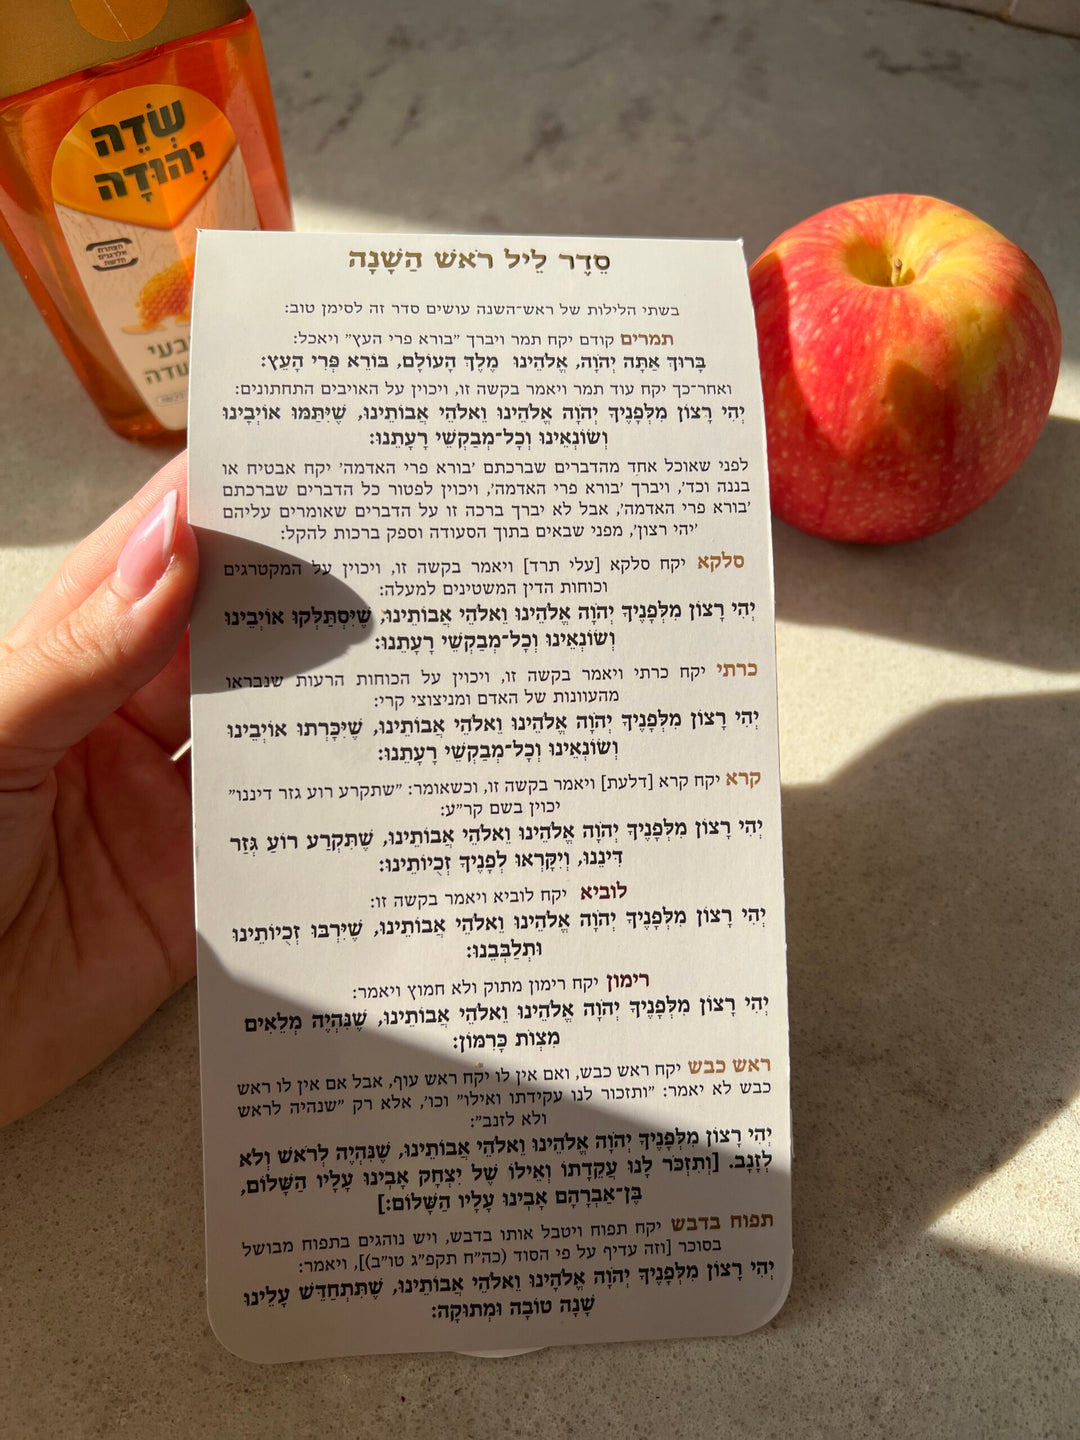 שְׂדֵה
יְהוּדָה
סֵדֶר לֵיל רֹאשׁ הַשָּׁנָה
בשתי הלילות של ראש־השנה עושים סדר זה לסימן טוב:
תמרים קודם יקח תמר ויברך ״בורא פרי העץ״ ויאכל:
בָּרוּךְ אַתָּה יְהֹוָה, אֱלֹהֵינוּ מֶלֶךְ הָעוֹלָם, בּוֹרֵא פְּרִי הָעֵץ:
ואחר־כך יקח עוד תמר ויאמר בקשה זו, ויכוין על האויבים התחתונים:
יְהִי רָצוֹן מִלְּפָנֶיךָ יְהֹוָה אֱלֹהֵינוּ וֵאלֹהֵי אֲבוֹתֵינוּ, שֶׁיִּתַּמּוּ אוֹיְבֵינוּ
וְשׂוֹנְאֵינוּ וְכָל־מְבַקְשֵׁי רָעָתֵנוּ:
לפני שאוכל אחד מהדברים שברכתם ׳בורא פרי האדמה׳ יקח אבטיח או
בננה וכד׳, ויברך ׳בורא פרי האדמה׳, ויכוין לפטור כל הדברים שברכתם
׳בורא פרי האדמה׳, אבל לא יברך ברכה זו על הדברים שאומרים עליהם
׳יהי רצון׳, מפני שבאים בתוך הסעודה וספק ברכות להקל:
סלקא יקח סלקא [עלי תרד] ויאמר בקשה זו, ויכוין על המקטרגים
וכוחות הדין המשטינים למעלה:
יְהִי רָצוֹן מִלְּפָנֶיךָ יְהֹוָה אֱלֹהֵינוּ וֵאלֹהֵי אֲבוֹתֵינוּ, שֶׁיִּסְתַּלְּקוּ אוֹיְבֵינוּ
וְשׂוֹנְאֵינוּ וְכָל־מְבַקְשֵׁי רָעָתֵנוּ:
כרתי יקח כרתי ויאמר בקשה זו, ויכוין על הכוחות הרעות שנבראו
מהעוונות של האדם ומניצוצי קרי:
יְהִי רָצוֹן מִלְּפָנֶיךָ יְהֹוָה אֱלֹהֵינוּ וֵאלֹהֵי אֲבוֹתֵינוּ, שֶׁיִּכָּרְתוּ אוֹיְבֵינוּ
וְשׂוֹנְאֵינוּ וְכָל־מְבַקְשֵׁי רָעָתֵנוּ:
קרא יקח קרא [דלעת] ויאמר בקשה זו, וכשאומר: ״שתקרע רוע גזר דיננו״
יכוין בשם קר״ע:
יְהִי רָצוֹן מִלְּפָנֶיךָ יְהֹוָה אֱלֹהֵינוּ וֵאלֹהֵי אֲבוֹתֵינוּ, שֶׁתִּקְרַע רוֹעַ גְּזַר
דִּינֵנוּ, וְיִקָּרְאוּ לְפָנֶיךָ זְכֻיּוֹתֵינוּ:
לוביא יקח לוביא ויאמר בקשה זו:
יְהִי רָצוֹן מִלְּפָנֶיךָ יְהֹוָה אֱלֹהֵינוּ וֵאלֹהֵי אֲבוֹתֵינוּ, שֶׁיִּרְבּוּ זְכֻיּוֹתֵינוּ
וּתְלַבְּבֵנוּ:
רימון יקח רימון מתוק ולא חמוץ ויאמר:
יְהִי רָצוֹן מִלְּפָנֶיךָ יְהֹוָה אֱלֹהֵינוּ וֵאלֹהֵי אֲבוֹתֵינוּ, שֶׁנִּהְיֶה מְלֵאִים
מִצְוֹת כָּרִמּוֹן:
ראש כבש יקח ראש כבש, ואם אין לו יקח ראש עוף, אבל אם אין לו ראש
כבש לא יאמר: ״ותזכור לנו עקידתו ואילו״ וכו׳, אלא רק ״שנהיה לראש
ולא לזנב״:
יְהִי רָצוֹן מִלְּפָנֶיךָ יְהֹוָה אֱלֹהֵינוּ וֵאלֹהֵי אֲבוֹתֵינוּ, שֶׁנִּהְיֶה לְרֹאשׁ וְלֹא
לְזָנָב. [וְתִזְכֹּר לָנוּ עֲקֵדָתוֹ וְאֵילוֹ שֶׁל יִצְחָק אָבִינוּ עָלָיו הַשָּׁלוֹם,
בֶּן־אַבְרָהָם אָבִינוּ עָלָיו הַשָּׁלוֹם:]
תפוח בדבש יקח תפוח ויטבל אותו בדבש, ויש נוהגים בתפוח מבושל
בסוכר [וזה עדיף על פי הסוד (כה״ח תקפ״ג טו״ב)], ויאמר:
יְהִי רָצוֹן מִלְּפָנֶיךָ יְהֹוָה אֱלֹהֵינוּ וֵאלֹהֵי אֲבוֹתֵינוּ, שֶׁתִּתְחַדֵּשׁ עָלֵינוּ
שָׁנָה טוֹבָה וּמְתוּקָה: